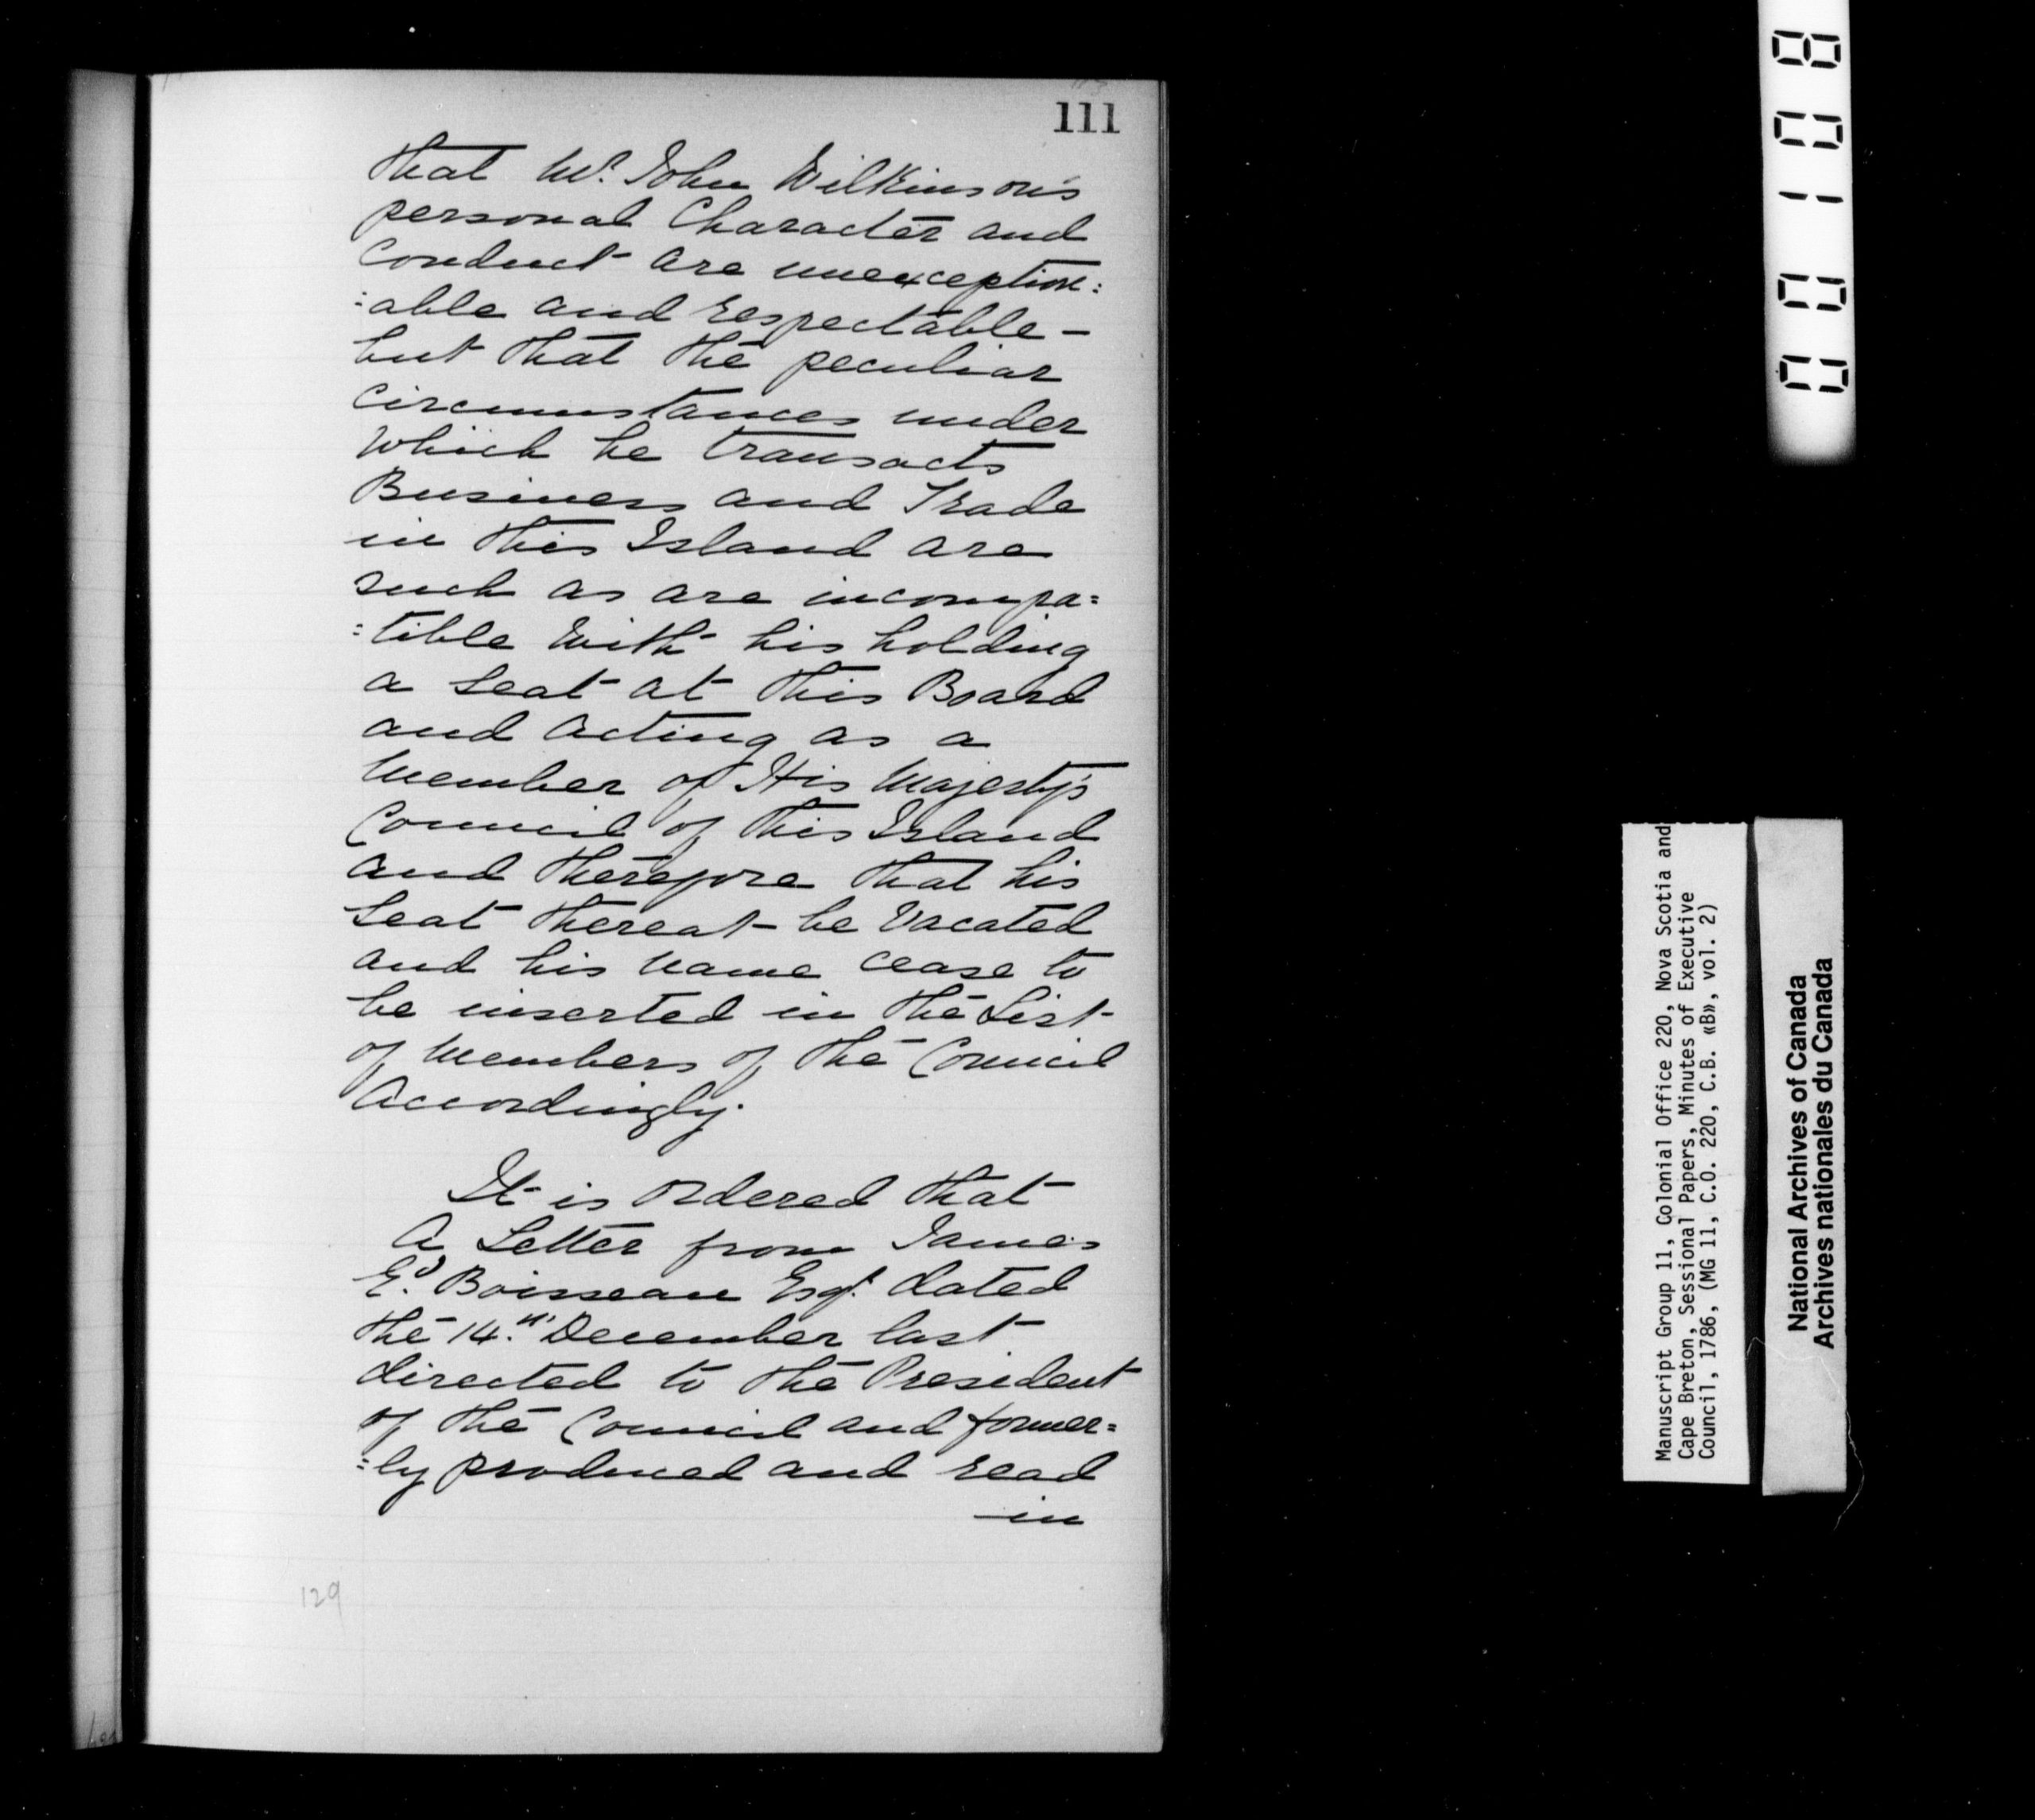 111
that Mr. John Wilkinson's
personal Character and
Conduct are unexception=
=able and respectable—
but that the peculiar
circumstances under
which he transacts
Business and Trade
in this Island are
such as are incompa=
=tible with his holding
a seat at this Board
and acting as a
Member of His Majesty's
Council of this Island
and therefore that his
seat thereat be vacated
and his name cease to
be inserted in the List
of Members of the Council
Accordingly.
It is ordered that
A Letter from James
Ed. Boisseau Esqr. dated
the 14.th December last
directed to the President
of the Council and former=
=ly produced and read
in
129
001008
Manuscript Group 11, Colonial Office 220, Nova Scotia and
Cape Breton, Sessional Papers, Minutes of Executive
Council, 1786, (MG 11, C.O. 220, C.B. «B», vol. 2)
National Archives of Canada
Archives nationales du Canada